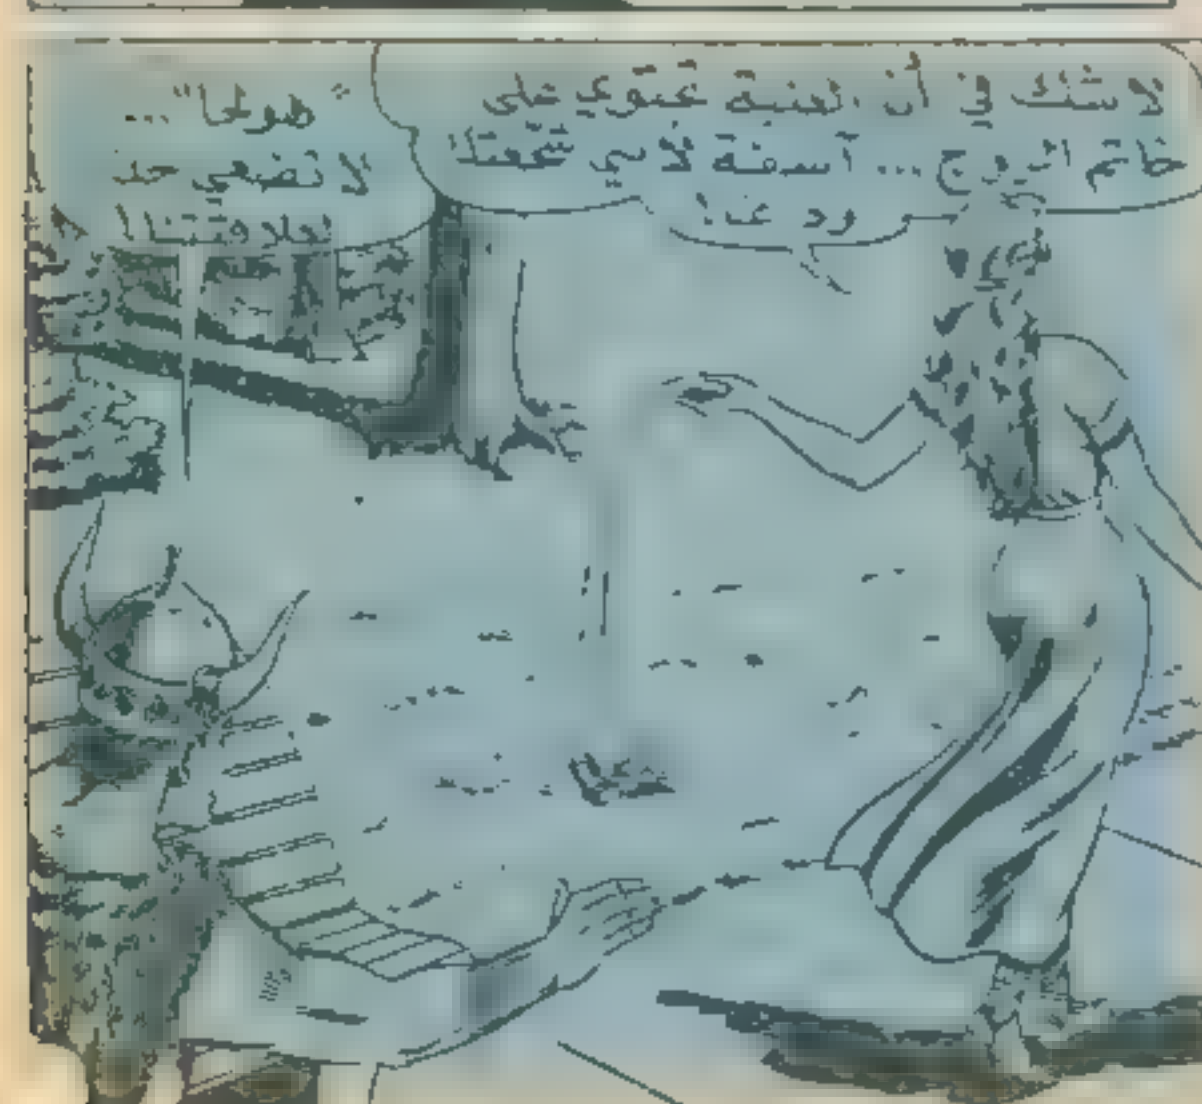 لا شك في أن العلبة تحتوي على
خاتم الزواج ... آسفة لأني سمعتك!
وداعًا!
"هولغا" ...
لا تضعي حد
لعلاقتنا!